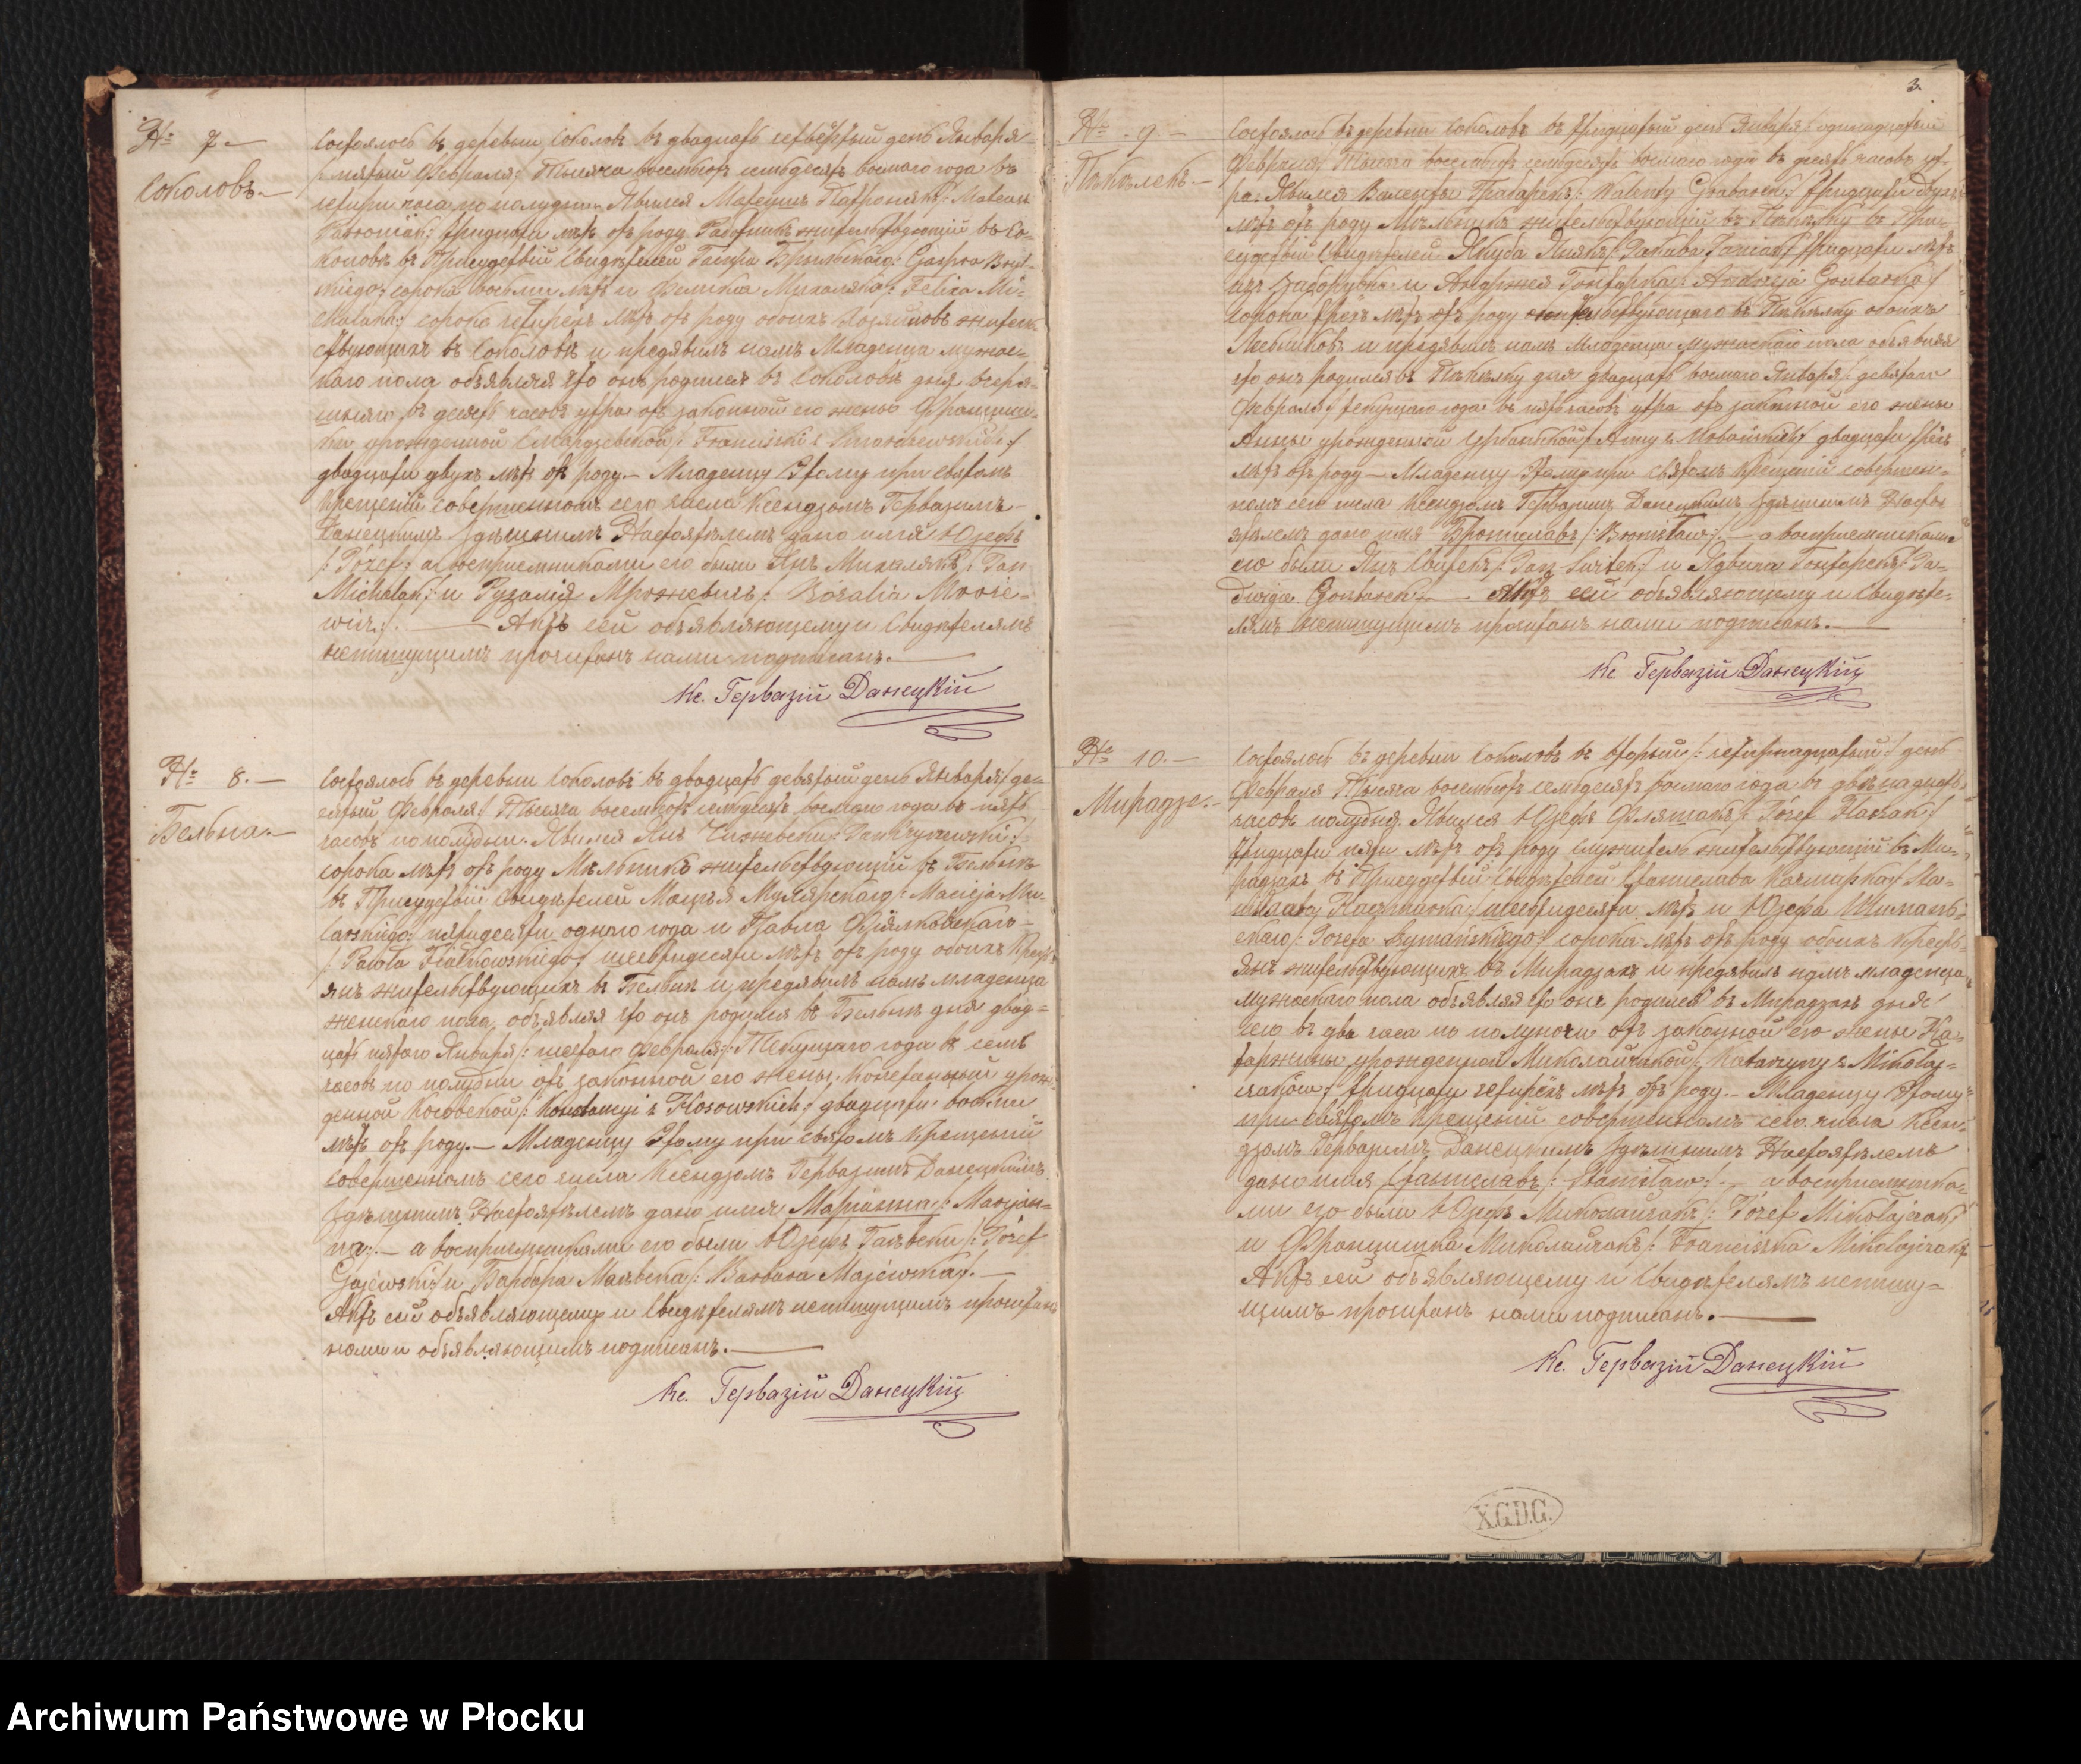 № 7.—
Соколовъ.—
Состоялось въ деревни Соколовѣ въ двадцать четвертый день Января
/: пятый Февраля :/ Тысяча восемьсотъ семьдесятъ восьмаго года въ
четыри часа по полудни. Явился Матеушъ Патронякъ /: Mateusz
Patroniak :/ тридцати лѣтъ отъ роду Работникъ жительствующій въ Со-
коловѣ въ Присудствіи Свидѣтелей Гаспра Брыльскаго /: Gaspra Bryl-
skiego :/ сорока восьми лѣтъ и Феликса Михаляка /: Felixa Mi-
chalaka :/ сорока четырёхъ лѣтъ отъ роду обоихъ Хозяиновъ житель-
ствующихъ въ Соколовѣ и предявилъ намъ Младенца мужес-
каго пола объявляя что онъ родился въ Соколовѣ дня вчера-
шняго въ десять часовъ утра отъ законной его жены Франциш-
ки урожденной Смардзевской /: Franciszki z Smardzewskich :/
двадцати двухъ лѣтъ отъ роду.— Младенцу Этому при Святомъ
Крещеніи Совершенномъ сего числа Ксендзомъ Гервазимъ
Данецкимъ Здѣшнимъ Настоятелемъ дано имя Юзефъ
/: Józef :/ а восприемниками его были Янъ Михалякъ /: Jan
Michalak :/ и Рузалія Мрожевичъ /: Rózalia Mroże-
wicz :/. — Актъ сей объявляющему и Свидѣтелямъ
непишущимъ прочитанъ нами подписанъ.—
Кс. Гервазій Данецкій
№ 8.—
Бельна.—
Состоялось въ деревни Соколовѣ въ двадцать девятый день Января /: де-
сятый Февраля :/ Тысяча восемьсотъ семьдесятъ восьмаго года въ пять
часовъ по полудни. Явился Янъ
сорока лѣтъ отъ роду Мѣльникъ жительствующій въ Бельнѣ
въ Присудствіи Свидѣтелей Мацѣя Мулярскаго /: Macieja Mu-
larskiego :/ пятидесяти одного года и Павла Фіялковскаго
/: Pawła Fiałkowskiego :/ шестидесяти лѣтъ отъ роду обоихъ Кресть-
янъ жительствующихъ въ Бельнѣ и предявилъ намъ младенца
женскаго пола, объявляя что онъ родился въ Бельнѣ дня двад-
цать пятаго Января /: шестаго Февраля :/ Текущаго года въ семь
часовъ по полудни отъ законной его жены Констанцыи урож-
денной Косовской /: Konstancyi z Kosowskich :/ двадцати восьми
лѣтъ отъ роду.— Младенцу Этому при святомъ Крещеніи
Совершенномъ сего числа Ксендзомъ Гервазимъ Данецкимъ
Здѣшнимъ Настоятелемъ дано имя Маріянна /: Maryan-
na :/.— а восприемниками его были Юзефъ Гаѣвски /: Józef
Gajewski :/ и Барбара Маѣвска /: Barbara Majewska :/.—
Актъ сей объявляющему и Свидѣтелямъ непишущимъ прочитанъ
нами и объявляющимъ подписанъ.—
Кс. Гервазій Данецкій
3.
№ 9.—
Состоялось въ деревни Соколовѣ въ тридцатый день Января /: одинадцатый
Февраля :/ Тысяча восемьсотъ семьдесятъ восьмаго года въ десять часовъ ут-
ра. Явился Валенты Грабарекъ /: Walenty Grabarek :/ тридцати двухъ
лѣтъ отъ роду Мѣльникъ жительствующій въ въ При-
судствіи Свидѣтелей Якуба /: Jakuba :/ тридцати лѣтъ
изъ и Андржея Гонтарка /: Andrzeja Gontarka :/
сорока трёхъ лѣтъ отъ роду жительствующаго въ обоихъ
и предявилъ намъ Младенца Мужескаго пола объявляя
что онъ родился въ дня двадцать восьмаго Января /: девятаго
Февраля :/ текущаго года въ пять часовъ утра отъ законной его жены
Анны урожденной /: Anny z :/ двадцати трёхъ
лѣтъ отъ роду — Младенцу Этому при Святомъ Крещеніи совершен-
номъ сего числа Ксендзомъ Гервазимъ Данецкимъ Здѣшнимъ Насто-
ятелемъ дано имя Брониславъ /: Bronisław :/.— а восприемниками
его были Янъ /: Jan :/ и Ядвига Гонтарекъ /: Ja-
dwiga Gontarek :/.— Актъ сей объявляющему и Свидѣте-
лямъ непишущимъ прочитанъ нами подписанъ.—
Кс. Гервазій Данецкій
№ 10.—
Мирадзе.—
Состоялось въ деревни Соколовѣ въ вторый /: четырнадцатый :/ день
Февраля Тысяча восемьсотъ семьдесятъ восьмаго года въ двѣнадцать
часовъ полудня. Явился Юзефъ /: Józef :/
тридцати пяти лѣтъ отъ роду Служитель жительствующій въ Ми-
радзахъ въ Присудствіи Свидѣтелей Станислава Качмарка /: Sta-
nisława Kaczmarka :/ шестидесяти лѣтъ и Юзефа Шимань-
скаго /: Józefa Szymańskiego :/ сорока лѣтъ отъ роду обоихъ Кресть-
янъ жительствующихъ въ Мирадзахъ и предявилъ намъ младенца
мужескаго пола объявляя что онъ родился въ Мирадзахъ дня
сего въ два часа по полуночи отъ законной его жены Ка-
таржины урожденной Миколайчакой /: Katarzyny z Mikołaj-
czaków :/ тридцати четырёхъ лѣтъ отъ роду.— Младенцу Этому
при Святомъ Крещеніи совершенномъ сего числа Ксен-
дзомъ Гервазимъ Данецкимъ Здѣшнимъ Настоятелемъ
дано имя Станиславъ /: Stanisław :/.— а восприемника-
ми его были Юзефъ Миколайчакъ /: Józef Mikołajczak :/
и Францишка Миколайчакъ /: Franciszka Mikołajczak :/
Актъ сей объявляющему и Свидѣтелямъ непишу-
щимъ прочитанъ нами подписанъ.—
Кс. Гервазій Данецкій
X.G.D.G.
Archiwum Państwowe w Płocku